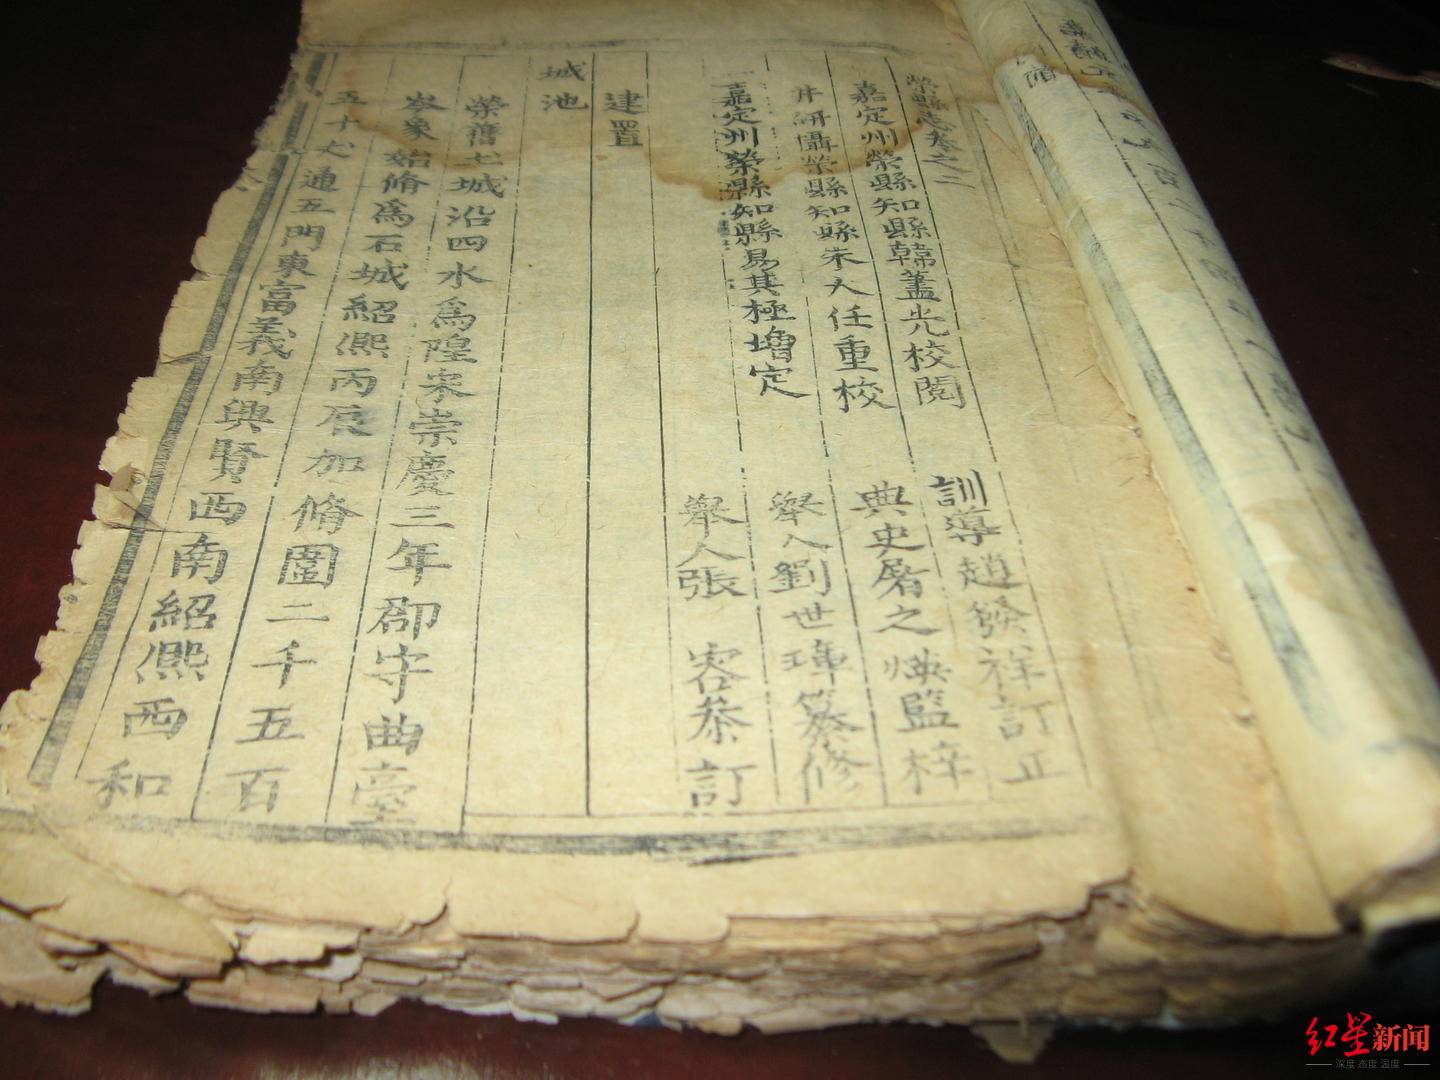 榮縣志卷之二
嘉定州榮縣知縣韓藎光校閱 訓導趙發祥訂正
井研攝榮縣知縣朱大任重校 典史屠之煐監梓
嘉定州榮縣知縣易其極增定 舉人劉世琿纂修
舉人張 容恭訂
建置
城池
榮舊土城沿四水爲隍宋崇慶三年郡守曲臺
岑象始脩爲石城紹熈丙辰加脩圍二千五百
五十丈通五門東富義南興賢西南紹熈西和
红星新闻
深度 态度 温度